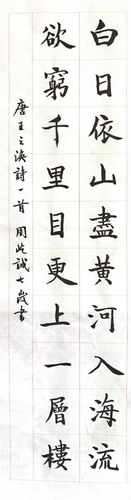 白日依山盡黃河入海流
欲窮千里目更上一層樓
唐王之渙詩一首 周屹誠七歲書